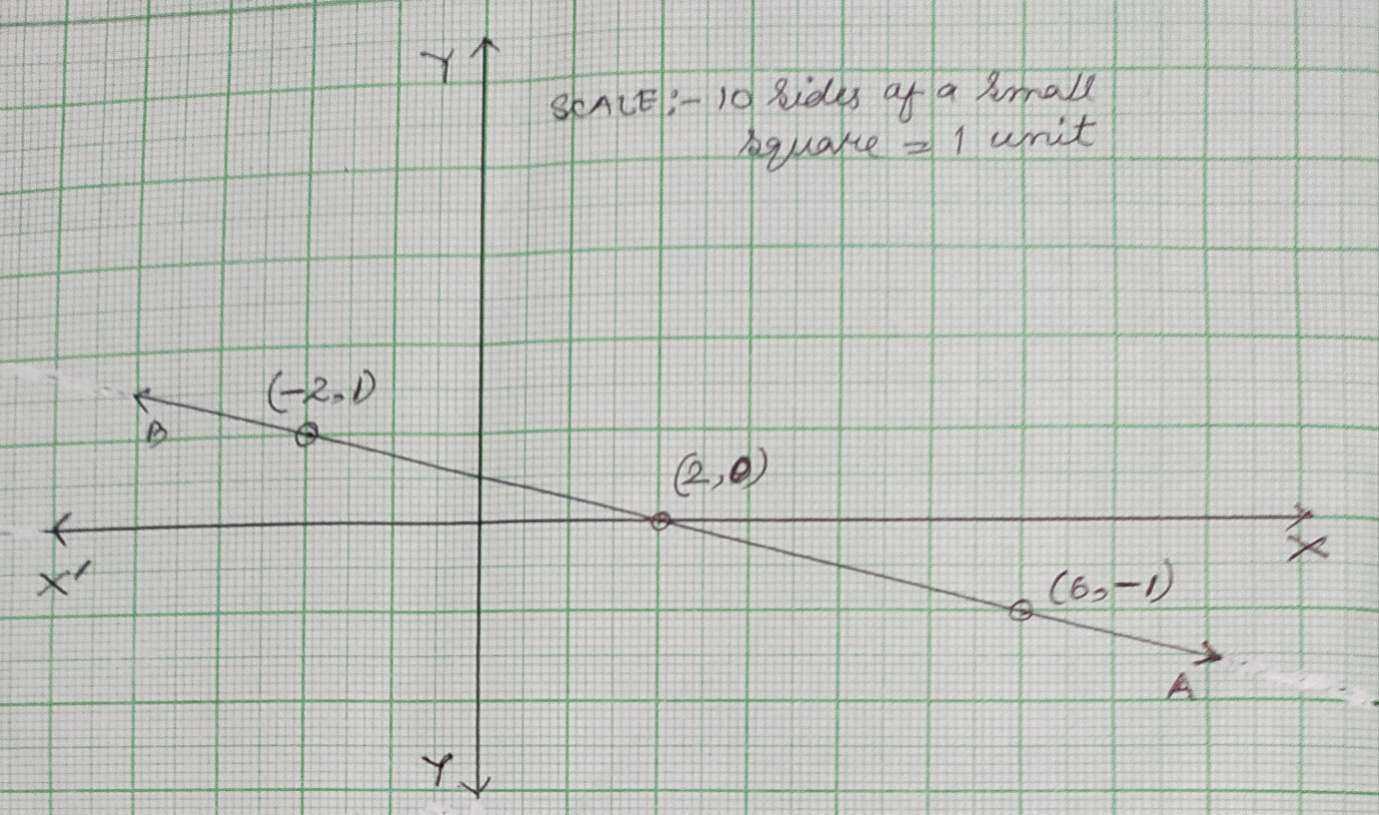 Y
SCALE:- 10 sides of a small
square = 1 unit
(-2,1)
B
(2,0)
X'
X
(6,-1)
A
Y